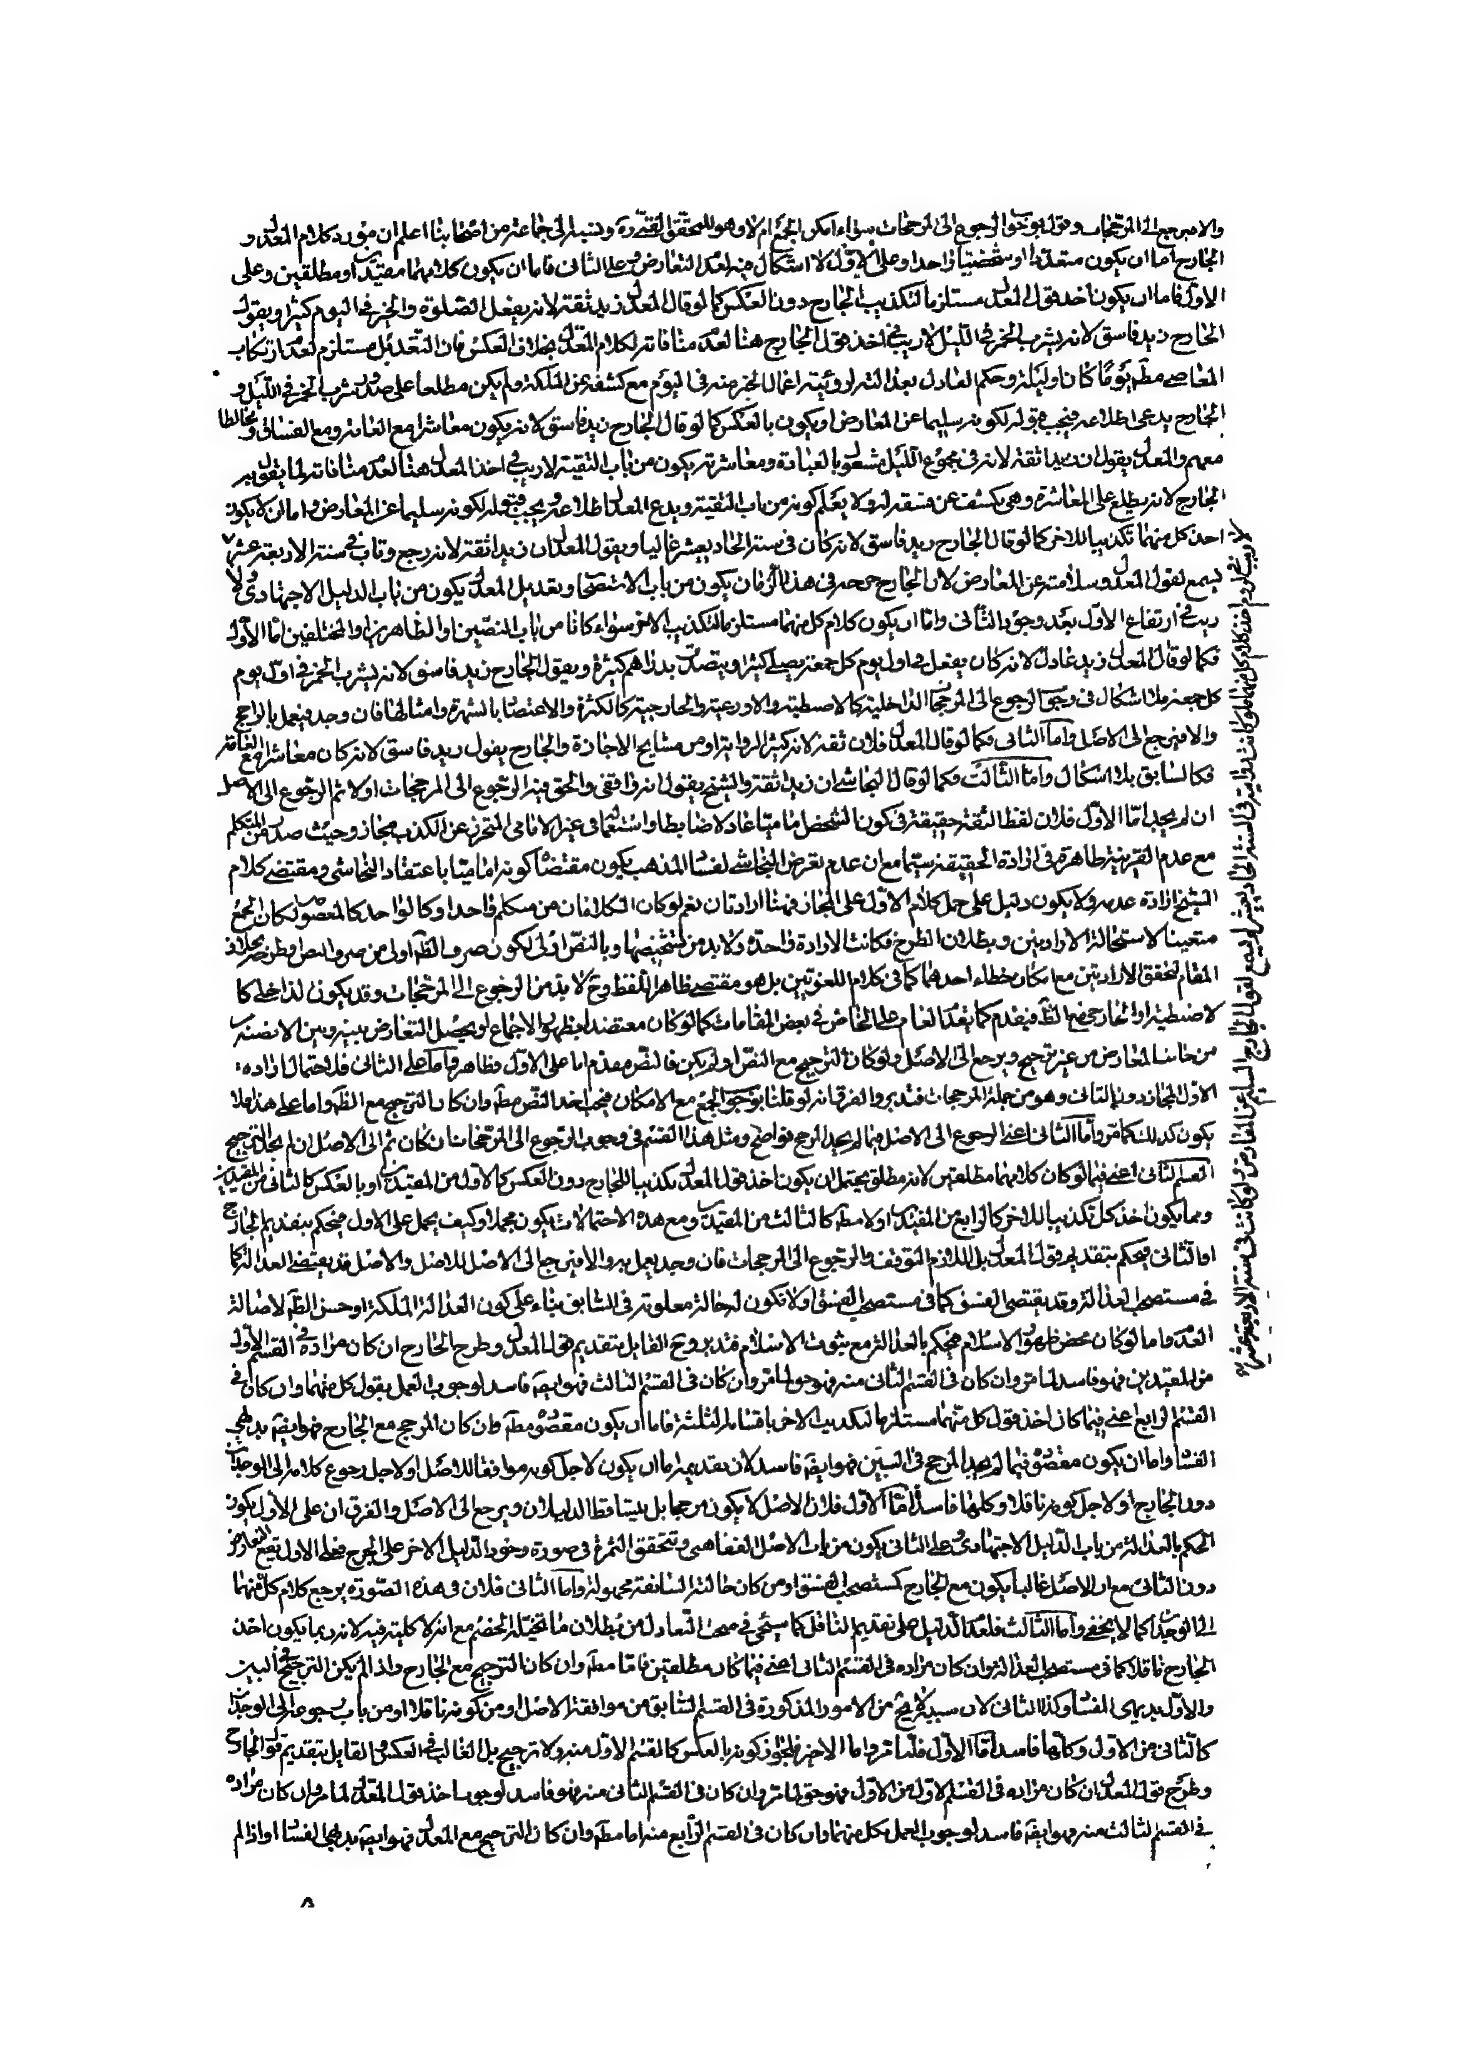 والا فيرجع الى المرجحات وقول بوجوب الرجوع الى المرجحات سواء امكن الجمع ام لا وهو للمحقق القمي ره ونسبه الى جماعة من اصحابنا اعلم ان مورد كلام المعدل و
الجارح اما ان يكون متعددا او شخصيا واحدا وعلى الاول لا اشكال فيه لعدم التعارض وعلى الثانى فاما ان يكون كلامهما مقيدين او مطلقين وعلى
الاول فاما ان يكون اخذ قول المعدل مستلزما لتكذيب الجارح دون العكس كما لو قال المعدل زيد ثقة لانه يفعل الصلوة والخير فى اليوم كثيرا ويقول
الجارح زيد فاسق لانه يشرب الخمر فى الليل لا ريب فى اخذ قول الجارح هنا لعدم منافاته لكلام المعدل بخلاف العكس فان التعديل مستلزم لعدم ارتكاب
المعاصى مطم يوما كان او ليلة وحكم العادل بعد التهم اعمال الخير منه فى اليوم مع كشفه عن الملكة ولم يكن مطلعا على صدور شرب الخمر فى الليل و
الجارح يدعى اطلاعه فيجب قبوله لكونه سليما عن المعارض او يكون بالعكس كما لو قال الجارح زيد فاسق لانه يكون معاشرا مع العامة ومع الفساق ومخالطا
معهم والمعدل يقول ان زيدا ثقة لانه فى مجموع الليل مشغول بالعبادة ومعاشرته يكون من باب التقية لا ريب فى اخذ المعدل هنا لعدم منافاته لما يقول به
الجارح لانه يطلع على المعاشرة وهى يكشف عن فسقه له ولا يعلم كونه من باب التقية ويدعى المعدل اطلاعه ويجب قبوله لكونه سليما عن المعارض واما ان لا يكون
اخذ كل منهما تكذيبا للاخر كما لو قال الجارح زيد فاسق لانه كان فى سنة الحاديعشر غاليا ويقول المعدل ان زيدا ثقة لانه رجع وتاب فى سنة الاربعة عشر
ليسمع لقول المعدل وسلامته عن المعارض لان الجارح جرحه فى هذا الزمان يكون من باب الاستصحاب وتعديل المعدل يكون من باب الدليل الاجتهادى ولا
ريب فى ارتفاع الاول بعد وجود الثانى واما ان يكون كلام كل منهما مستلزما لتكذيب الاخر سواء كانا من باب النصين او الظاهرين او المختلفين اما الاول
فكما لو قال المعدل زيد عادل لانه كان يفعل فى اول يوم كل جمعة يصلى كثيرا ويتصدق بدراهم كثيرة ويقول الجارح زيد فاسق لانه يشرب الخمر فى اول يوم
كل جمعة فلا اشكال فى وجوب الرجوع الى المرجحات الداخلية كالاضبطية والاورعية والخارجية كالكثرة والاعتضاد بالشهرة وامثالها فان وجد فيعمل بالراجح
والا فيرجع الى الاصل واما الثانى فكما لو قال المعدل فلان ثقة لانه كثير الرواية او من مشايخ الاجازة والجارح يقول زيد فاسق لانه كان معاشرا مع العامة
فكالسابق بلا اشكال واما الثالث فكما لو قال النجاشى ان زيدا ثقة والشيخ يقول انه واقفى والحق فيه الرجوع الى المرجحات اولا ثم الرجوع الى الاصل
ان لم يجد اما الاول فلان لفظ الثقة حقيقة فى كون الشخص اماميا عادلا ضابطا واستعماله فى غير الامامى المتحرز عن الكذب مجاز وحيث صدر من المتكلم
مع عدم القرينة ظاهرة فى ارادة الحقيقة سيما مع ان عدم تعرض النجاشى لفساد المذهب يكون مقتضيا كونه اماميا باعتقاد النجاشى ومقتضى كلام
الشيخ ارادة عدمه ولا يكون دليل على حمل كلام الاول على المجاز فهنا ارادتان نعم لو كان الكلامان من متكلم واحد او كالواحد كالمعصومين لكان الجمع
متعينا لاستحالة الارادتين وبطلان الطرح فكانت الارادة واحدة ولا بد من تشخيصها وبالنص اولى لكون صرف الظ اولى من صرف النص وطرحه بخلاف
المقام لتحقق الارادتين مع امكان خطاء احدهما كما فى كلام اللغويين بل هو مقتضى ظاهر اللفظ وح لا بد من الرجوع الى المرجحات وقد يكون لداخلى كا
لاضبطية او الخارجى مع الظ فيقدم كما يقدم العام على الخاص فى بعض المقامات كما لو كان معتضدا بظهور الاجماع او يحصل التعارض بينه وبين الاضبطية
من جانب المعارض من غير ترجيح ويرجع الى الاصل ولو كان الترجيح مع النص او لم يكن فالنص مقدم اما على الاول فظاهر واما على الثانى فلاحتمال ارادة
الاول المجاز دون الثانى وهو من جملة المرجحات فتدبر والفرق انه لو قلنا بوجوب الجمع مع الامكان فيجب اخذ النص مطم وان كان الترجيح مع الظ واما على هذا فلا
يكون كذلك كما مر واما الثانى اعنى الرجوع الى الاصل فيما لم يجد المرجح فواضح ومثل هذا القسم فى وجوب الرجوع الى المرجحات ان كان ثم الى الاصل ان لم يجد الترجيح
القسم الثانى اعنى فيما لو كان كلامهما مطلقين لانه مطلق يحتمل ان يكون اخذ قول المعدل تكذيبا للجارح دون العكس كالاول من المقيدين او بالعكس كالثانى من المقيدين
وربما يكون اخذ كل تكذيب للاخر كالرابع من المقيدين اولا مطم كالثالث من المقيدين ومع هذه الاحتمالات يكون مجملا وكيف يحمل على الاول فيحكم بتقديم الجارح
او الثانى فيحكم بتقديم قول المعدل بل اللازم التوقف والرجوع الى المرجحات فان وجد يعمل به والا فيرجع الى الاصل للاصل والاصل قد يقتضى العدالة كما
فى مستصحب العدالة وقد يقتضى الفسق كما فى مستصحب الفسق او لا تكون له حالة معلومة فى السابق بناء على كون العدالة الملكة او حسن الظ لاصالة
العدم واما لو كان محض ظهور الاسلام فيحكم بالعدالة مع ثبوت الاسلام فتدبر وح القايل بتقديم قول المعدل وطرح الجارح ان كان مراده فى القسم الاول
من المقيدين فهو فاسد لما مر وان كان فى القسم الثانى منه فهو حق لما مر وان كان فى القسم الثالث فهو ايضا فاسد لوجوب العمل بقول كل منهما وان كان فى
القسم الرابع اعنى فيما كان اخذ قول كل منهما مستلزما لتكذيب الاخر باقسامه الثلثة فاما ان يكون مقصوده مطم وان كان المرجح مع الجارح فهو ايضا بديهى
الفساد واما ان يكون مقصوده فيما لم يجد المرجح فى البين فهو ايضا فاسد لان تقديمه اما ان يكون لاجل كونه موافقا للاصل او لاجل رجوع كلامه الى الوجدان
دون الجارح او لاجل كونه ناقلا وكلها فاسد اما الاول فلان الاصل لا يكون مرجحا بل يتساقط الدليلان ويرجع الى الاصل والفرق ان على الاول يكون
الحكم بالعدالة من باب الدليل الاجتهادى وعلى الثانى يكون من باب الاصل الفقاهى وتتحقق الثمرة فى صورة وجود الدليل الاخر على الجرح فعلى الاول يقع التعارض
دون الثانى مع ان الاصل غالبا يكون مع الجارح كمستصحب الفسق او من كان حالته السابقة مجهولة واما الثانى فلان فى هذه الصورة يرجع كلام كل منهما
الى الوجدان كما لا يخفى واما الثالث فلعدم الدليل على تقديم الناقل كما سيجئ فى مبحث التعادل من بطلان ما تخيله الخصم مع انه لا كلية فيه لانه ربما يكون اخذ
الجارح ناقلا كما فى مستصحب العدالة وان كان مراده فى القسم الثانى اعنى فيما كان مطلقين فاما مطم وان كان الترجيح مع الجارح واذا لم يكن الترجيح فى البين
والاول بديهى الفساد وكذا الثانى لان سببه لا يخ من الامور المذكورة فى القسم السابق من موافقة الاصل او من كونه ناقلا او من باب رجوعه الى الوجدان
كالثانى من الاول وكلها فاسد اما الاول فلما مر واما الاخير فلجواز كونه بالعكس كالقسم الاول منه ولا ترجيح بل الغالب فى العكس والقايل بتقديم قول الجارح
وطرح قول المعدل ان كان مراده فى القسم الاول من الاول فهو حق لما مر وان كان فى القسم الثانى منه فهو فاسد لوجوب اخذ قول المعدل لما مر وان كان مراده
فى القسم الثالث منه فهو ايضا فاسد لوجوب العمل بكل منهما وان كان فى القسم الرابع منه اما مطم وان كان الترجيح مع المعدل فهو ايضا بديهى الفساد او اذا لم
لا ريب فى لزوم اخذ كلام كل منهما فلو كانت رواية فى السنة الحاديعشر ليسمع لقول الجارح السليم عن المعارض ولو كانت فى سنة الاربعة عشر
٨